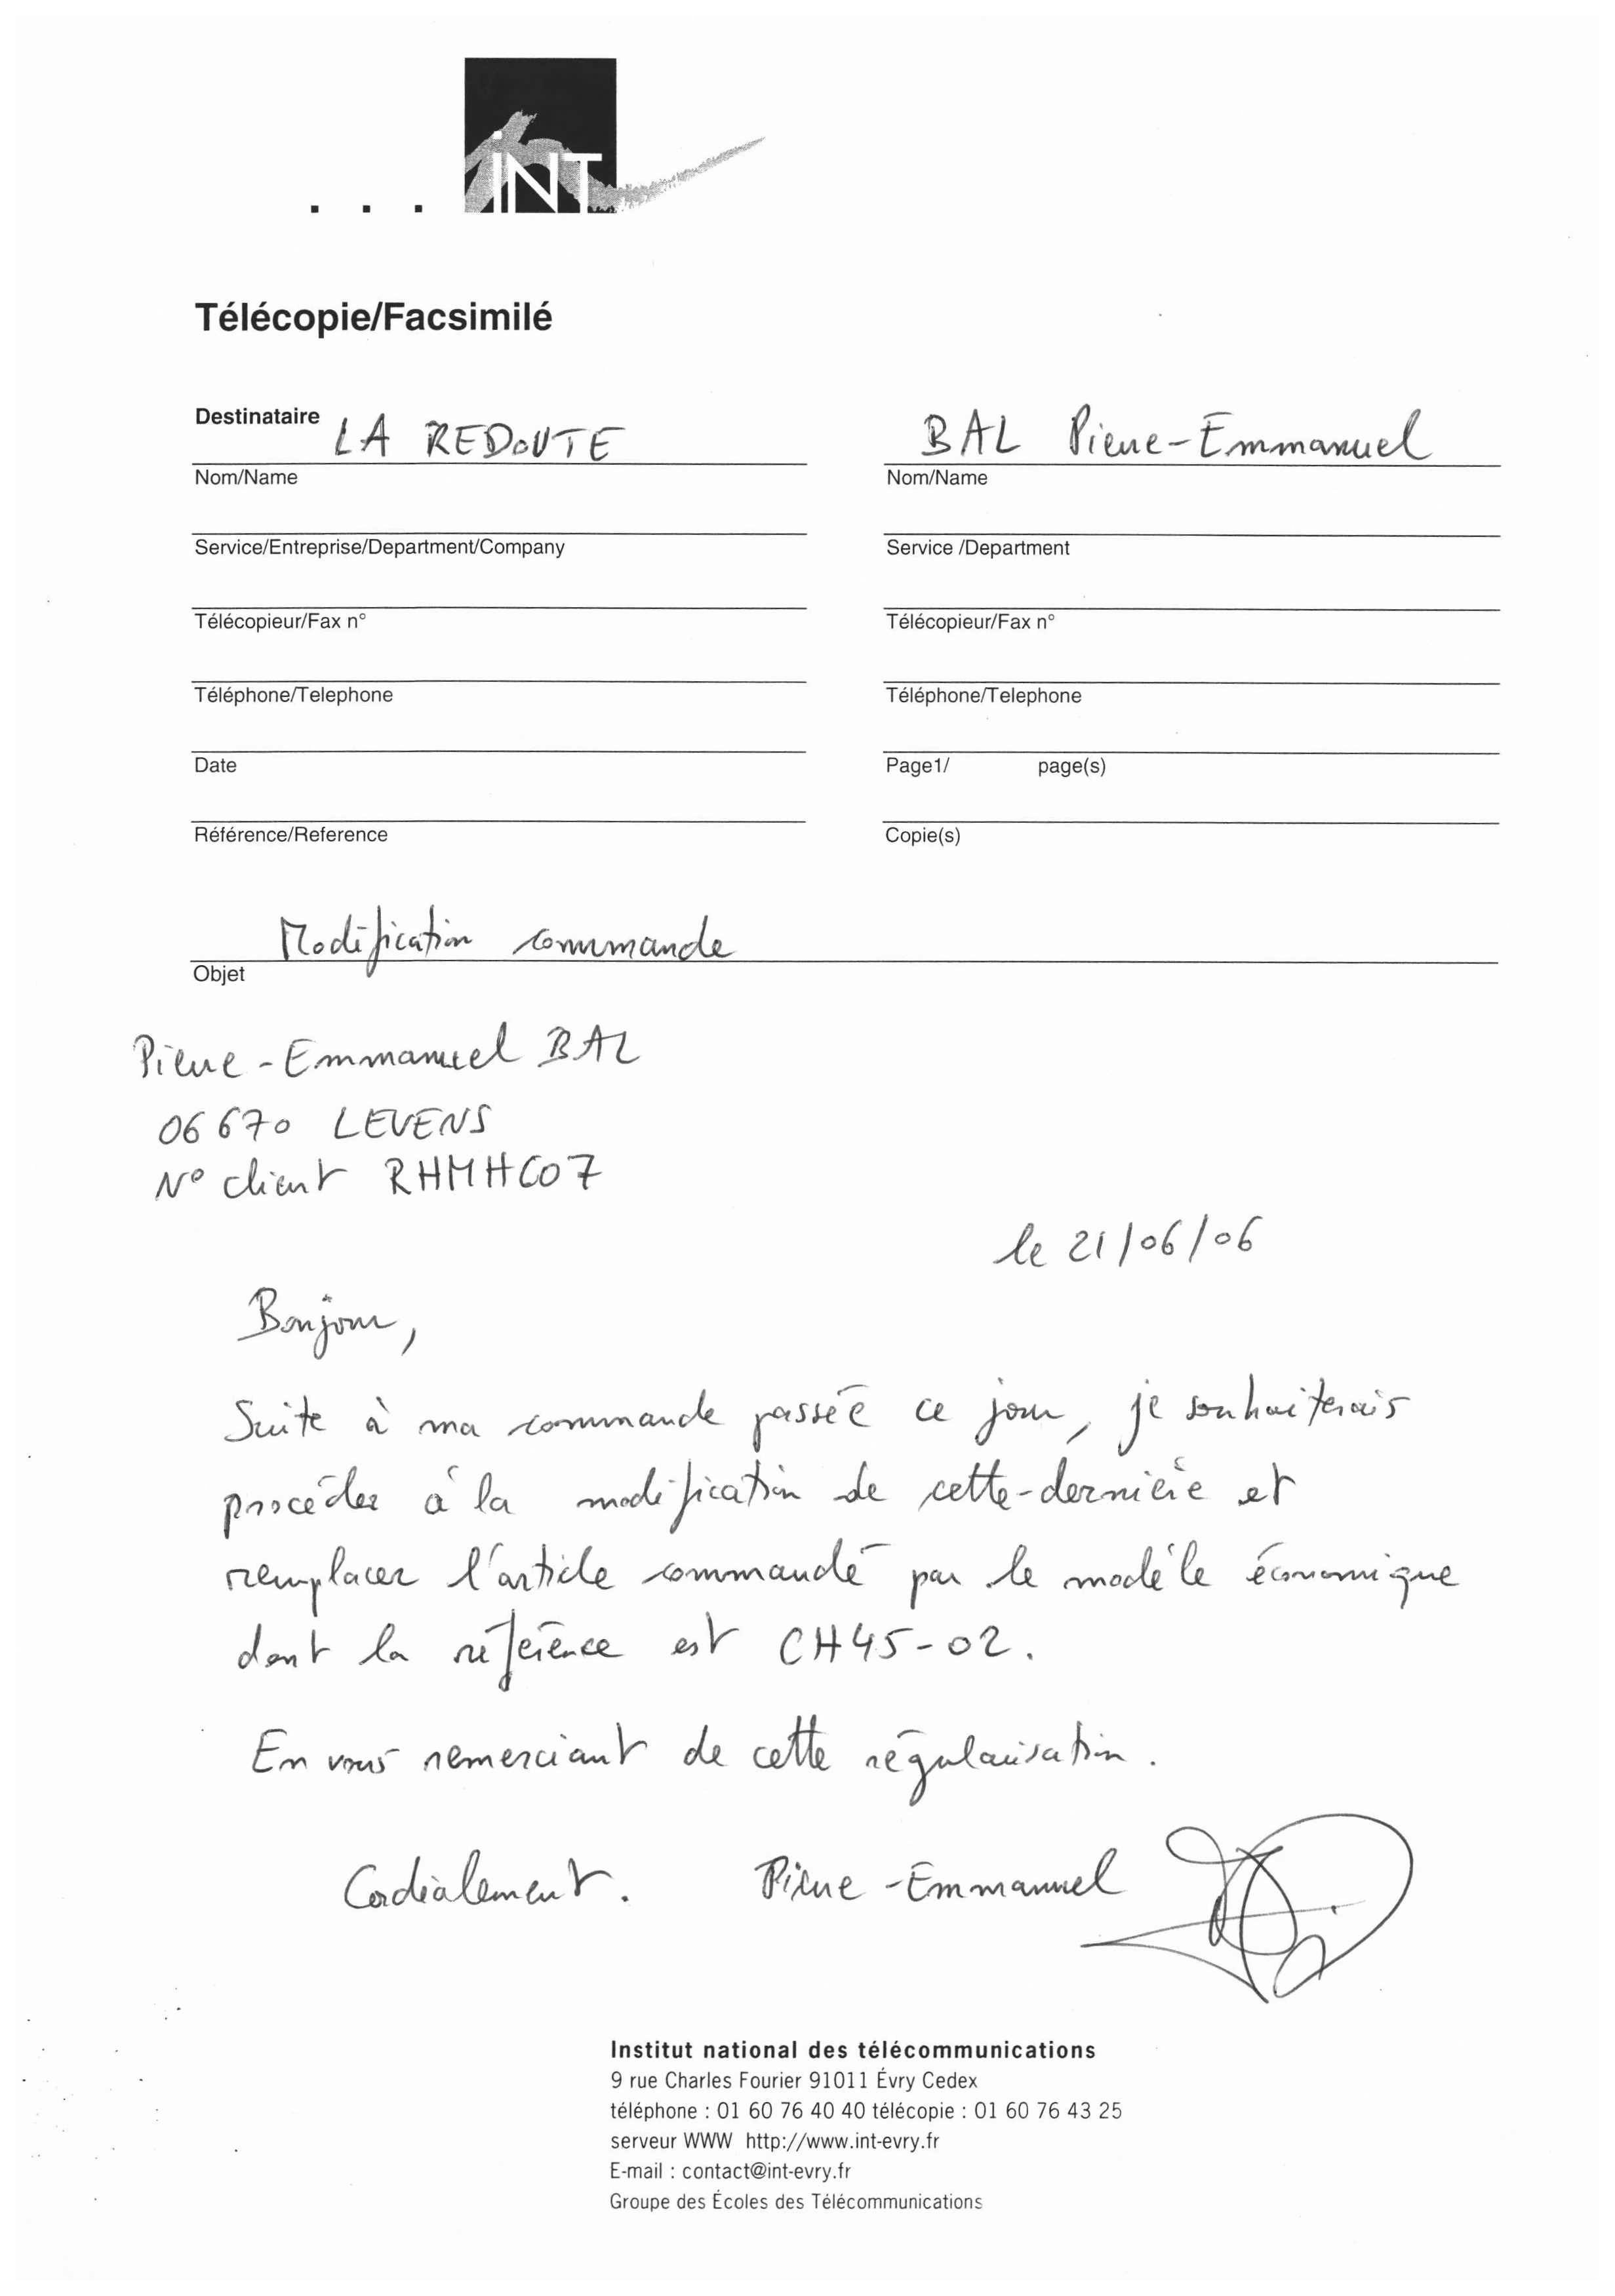 ... iNT
Télécopie/Facsimilé
Destinataire LA REDOUTE
BAL Pierre-Emmanuel
Nom/Name
Nom/Name
Service/Entreprise/Department/Company
Service /Department
Télécopieur/Fax n°
Télécopieur/Fax n°
Téléphone/Telephone
Téléphone/Telephone
Date
Page1/ page(s)
Référence/Reference
Copie(s)
Modification commande
Objet
Pierre-Emmanuel BAL
06670 LEVENS
N° client RHMHC07
le 21/06/06
Bonjour,
Suite à ma commande passée ce jour, je souhaiterais
procéder à la modification de cette-dernière et
remplacer l'article commandé par le modèle économique
dont la référence est CH45-02.
En vous remerciant de cette régularisation.
Cordialement. Pierre-Emmanuel
Institut national des télécommunications
9 rue Charles Fourier 91011 Évry Cedex
téléphone : 01 60 76 40 40 télécopie : 01 60 76 43 25
serveur WWW http://www.int-evry.fr
E-mail : contact@int-evry.fr
Groupe des Écoles des Télécommunications